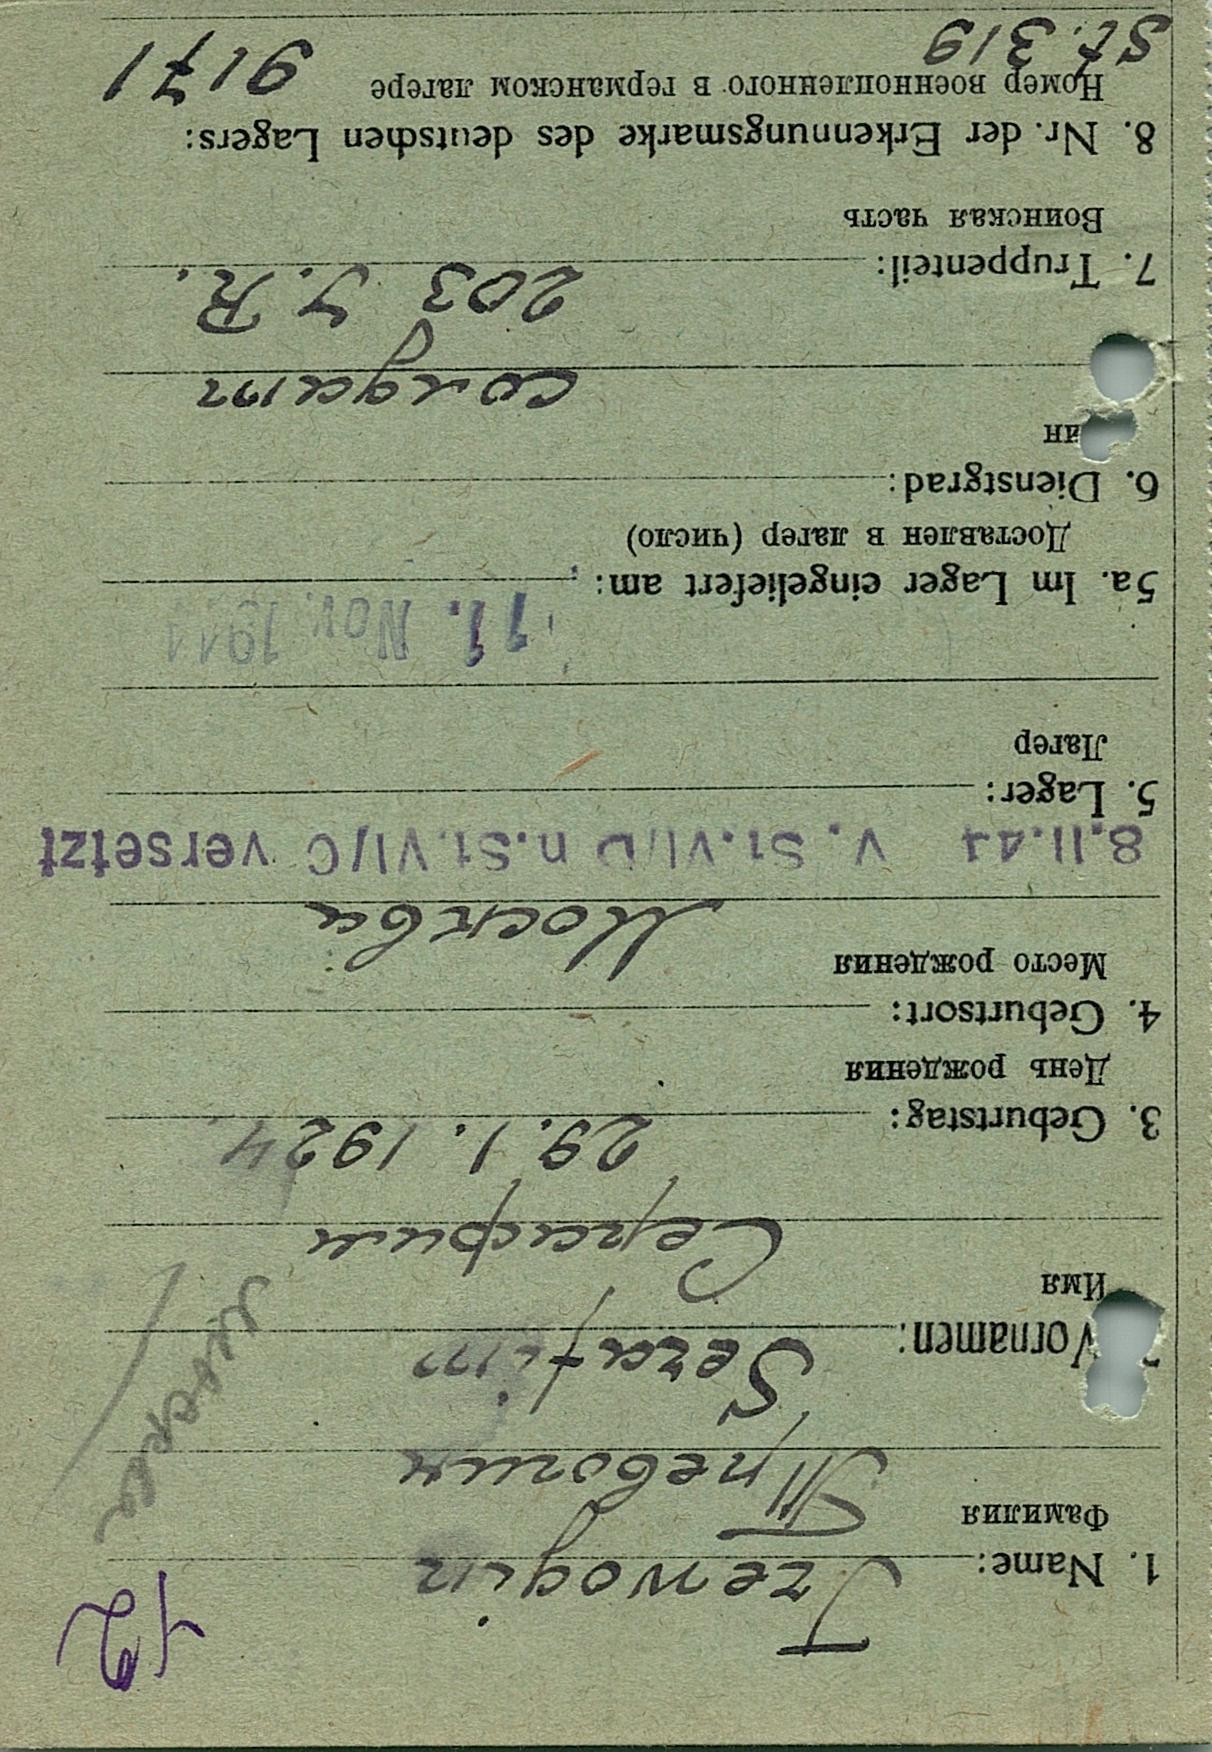 42
1. Name: Trewogin
Фамилия Тревогин
Vornamen: Serafim
Имя
Серафим
29.1.1924
3. Geburtstag:
День рождения
4. Geburtsort:
Место рождения Москва
8.11.44 v. St.VI/D n.St.VI/C versetzt
5. Lager:
Лагер
11. Nov. 1944
5a. Im Lager eingeliefert am:
Доставлен в лагер (число)
6. Dienstgrad:
ин
солдат
203 J.R.
7. Truppenteil:
Воинская часть
8. Nr. der Erkennungsmarke des deutschen Lagers:
Номер военнопленного в германском лагере 9171
St. 319